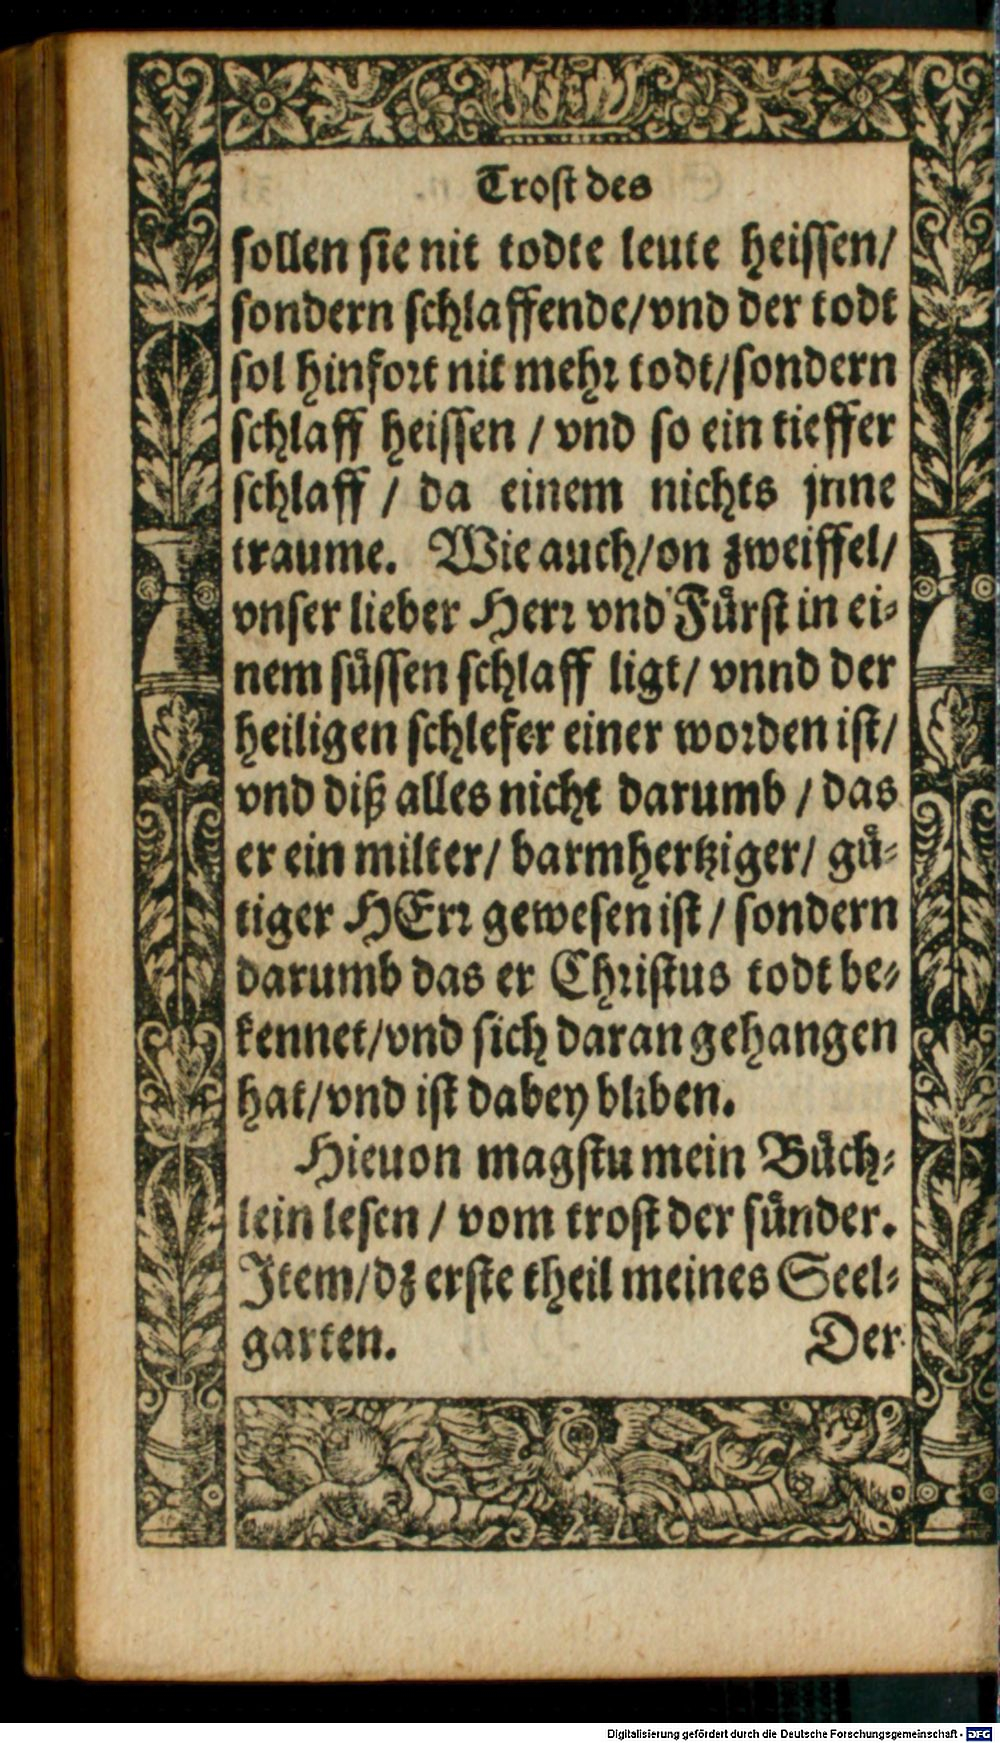 Trost des
sollen sie nit todte leute heissen/
sondern schlaffende/vnd der todt
sol hinfort nit mehr todt/sondern
schlaff heissen / vnd so ein tieffer
schlaff / da einem nichts jnne
traume. Wie auch/on zweiffel/
vnser lieber Herr vnd Fuͤrst in ei-
nem suͤssen schlaff ligt/ vnnd der
heiligen schlefer einer worden ist/
vnd diß alles nicht darumb / das
er ein milter/ barmhertziger/ guͤ-
tiger HErr gewesen ist / sondern
darumb das er Christus todt be-
kennet/vnd sich daran gehangen
hat/vnd ist dabey bliben.
Hieuon magstu mein Buͤch-
lein lesen / vom trost der suͤnder.
Item/dz erste theil meines Seel-
garten. Der
Digitalisierung gefördert durch die Deutsche Forschungsgemeinschaft - DFG